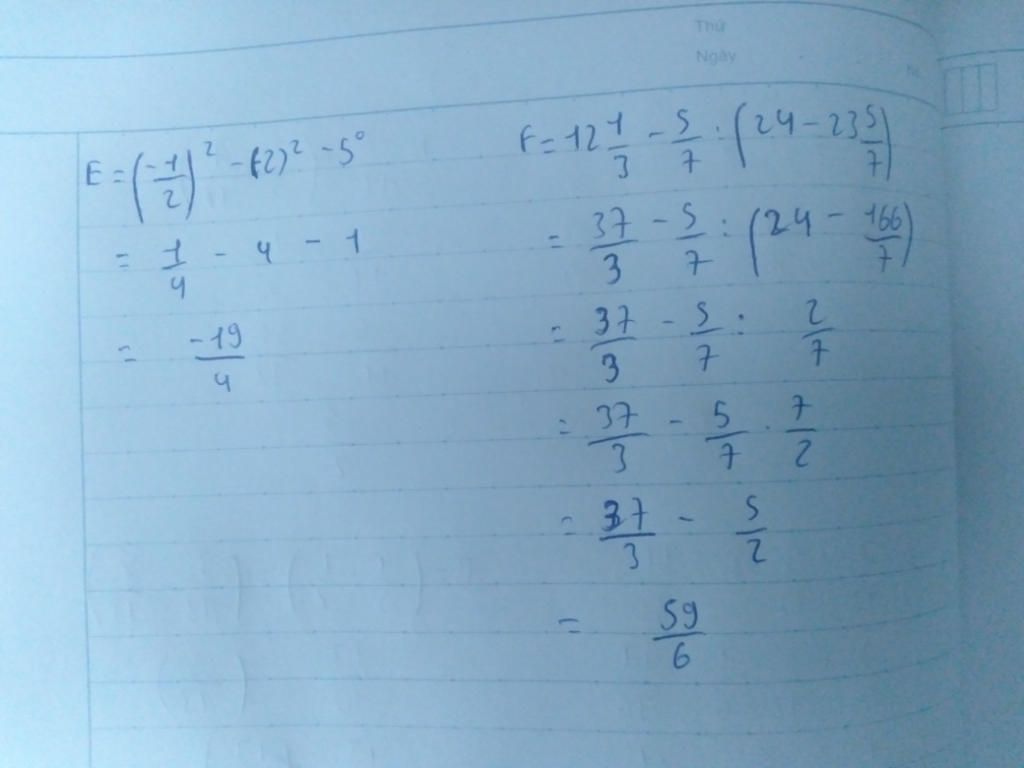 Thứ
Ngày
E = (-1/2)² - (-2)² - 5⁰
= 1/4 - 4 - 1
= -19/4
F = 12 1/3 - 5/7 : (24 - 23 5/7)
= 37/3 - 5/7 : (24 - 166/7)
= 37/3 - 5/7 : 2/7
= 37/3 - 5/7 . 7/2
= 37/3 - 5/2
= 59/6